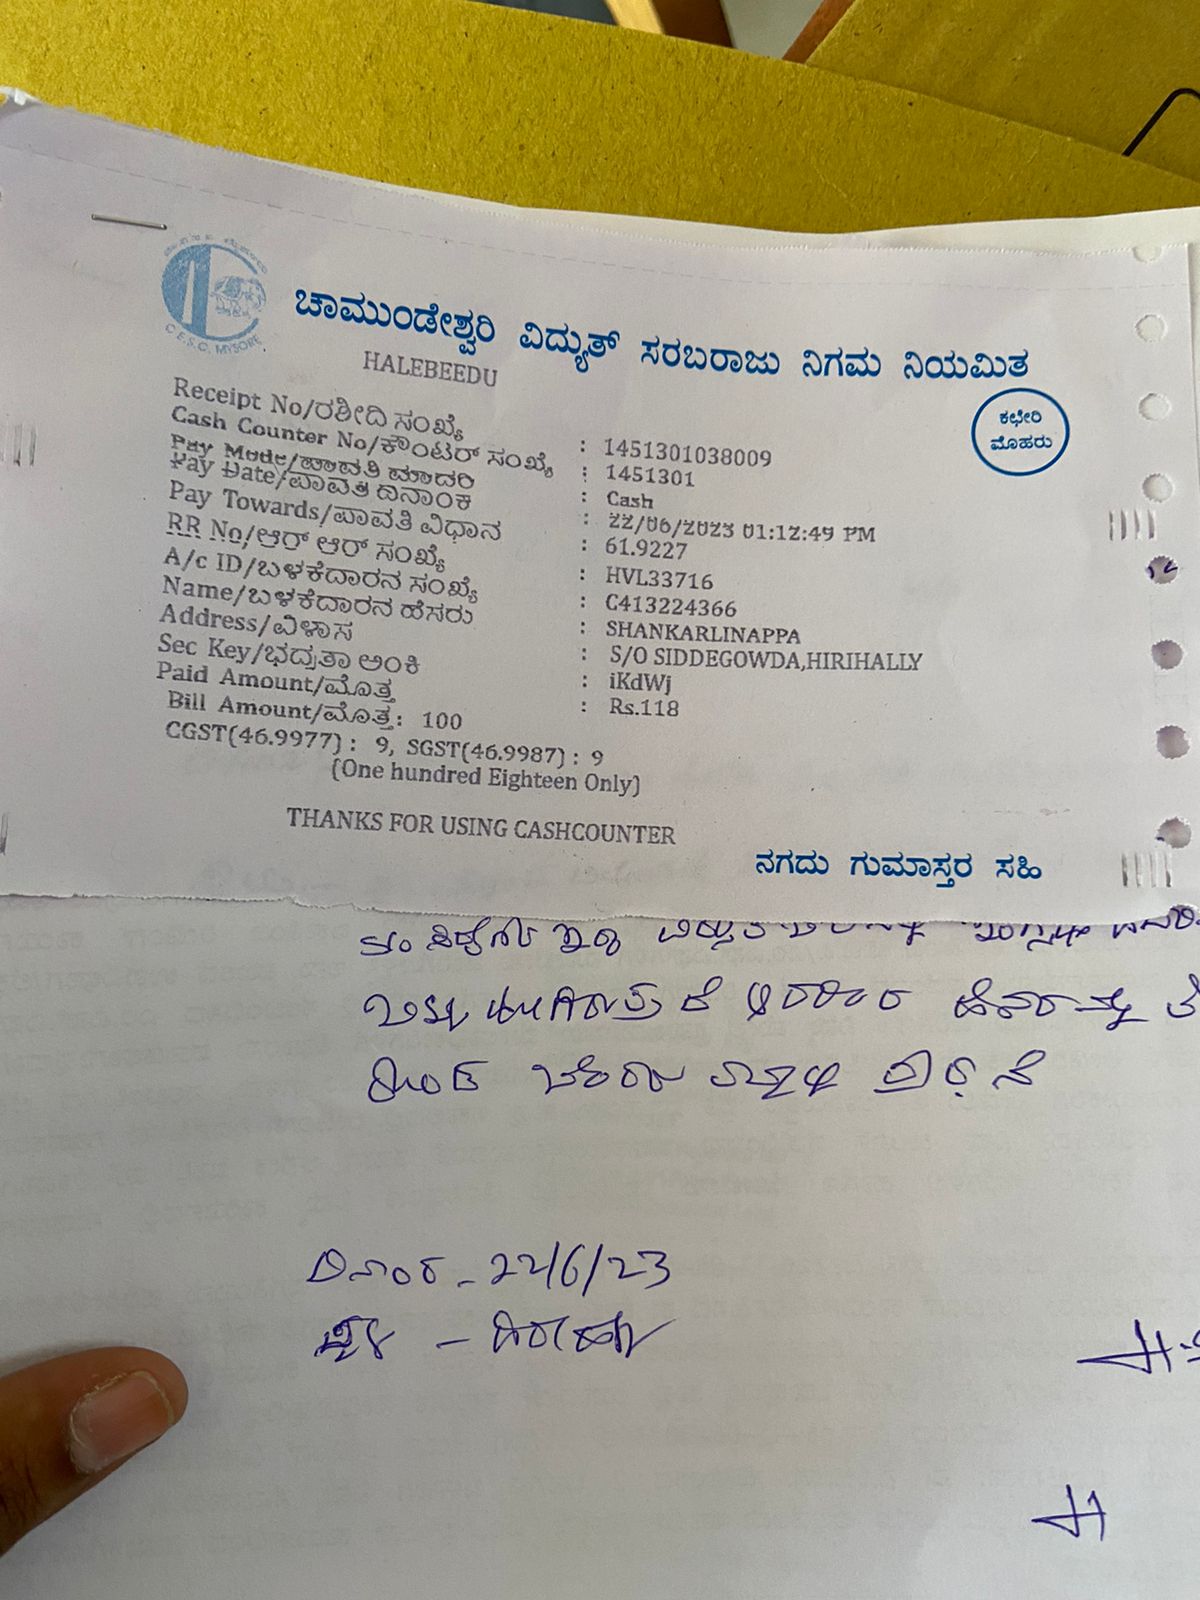 C.E.S.C. MYSORE
ಚಾಮುಂಡೇಶ್ವರಿ ವಿದ್ಯುತ್ ಸರಬರಾಜು ನಿಗಮ ನಿಯಮಿತ
HALEBEEDU
ಕಛೇರಿ
ಮೊಹರು
Receipt No/ರಶೀದಿ ಸಂಖ್ಯೆ : 1451301038009
Cash Counter No/ಕೌಂಟರ್ ಸಂಖ್ಯೆ : 1451301
Pay Mode/ಪಾವತಿ ಮಾದರಿ : Cash
Pay Date/ಪಾವತಿ ದಿನಾಂಕ : 22/06/2023 01:12:49 PM
Pay Towards/ಪಾವತಿ ವಿಧಾನ : 61.9227
RR No/ಆರ್ ಆರ್ ಸಂಖ್ಯೆ : HVL33716
A/c ID/ಬಳಕೆದಾರನ ಸಂಖ್ಯೆ : C413224366
Name/ಬಳಕೆದಾರನ ಹೆಸರು : SHANKARLINAPPA
Address/ವಿಳಾಸ : S/O SIDDEGOWDA,HIRIHALLY
Sec Key/ಭದ್ರತಾ ಅಂಕಿ : iKdWj
Paid Amount/ಮೊತ್ತ : Rs.118
Bill Amount/ಮೊತ್ತ: 100
CGST(46.9977) : 9, SGST(46.9987) : 9
(One hundred Eighteen Only)
THANKS FOR USING CASHCOUNTER
ನಗದು ಗುಮಾಸ್ತರ ಸಹಿ
ದಿನಾಂಕ - 22/6/23
ಸ್ಥಳ -